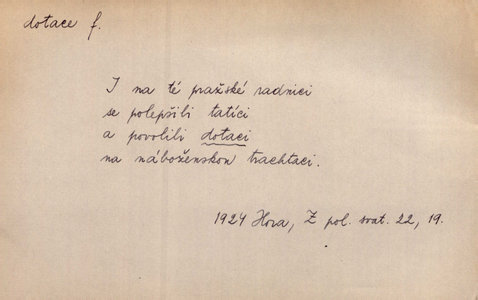 dotace f.
I na té pražské radnici
se polepšili tatíci
a povolili dotaci
na náboženskou trachtaci.
1924 Hora, Z pol. svat. 22, 19.